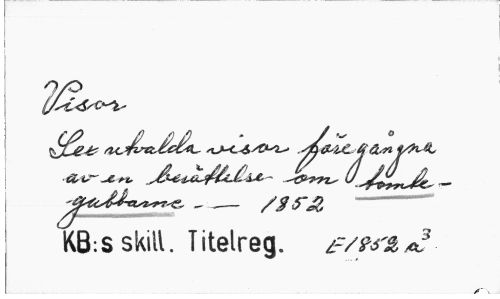 Visor
Sex utvalda visor föregångna
av en berättelse om tomte-
gubbarne - — 1852
KB:s skill. Titelreg. E1852 a³